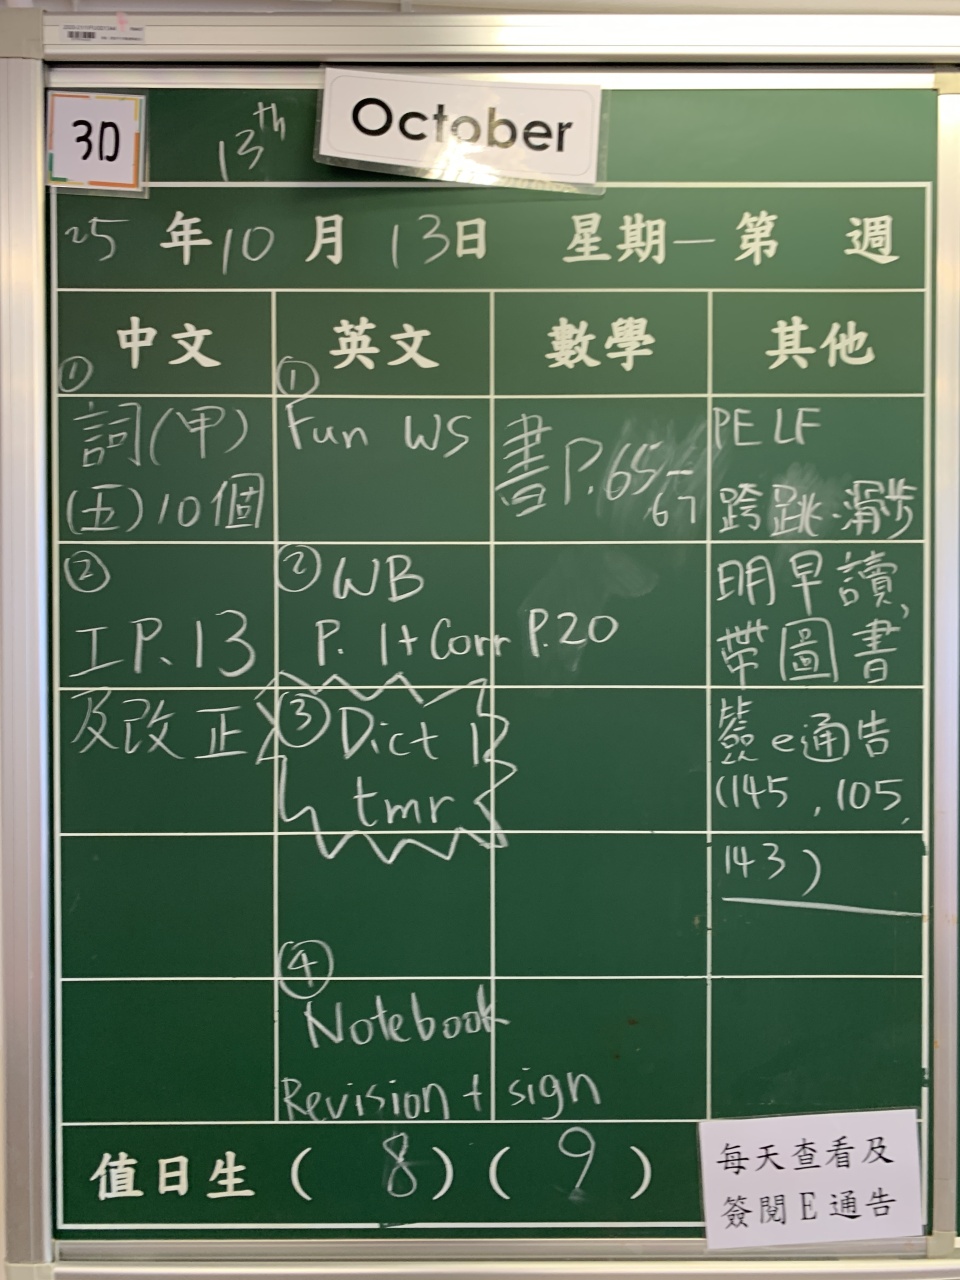 3D
13th
October
25 年 10 月 13 日 星期一 第 週
中文 英文 數學 其他
①
詞(甲)
(五)10個
②
工P.13
及改正
①
Fun WS
② WB
P. 1+Corr
③ Dict 1
tmr
④
Notebook
Revision + sign
書P.65-
67
P.20
PE LF
跨跳.滑步
明早讀,
帶圖書
簽e通告
(145,105,
143)
值日生( 8 )( 9 )
每天查看及
簽閱E通告